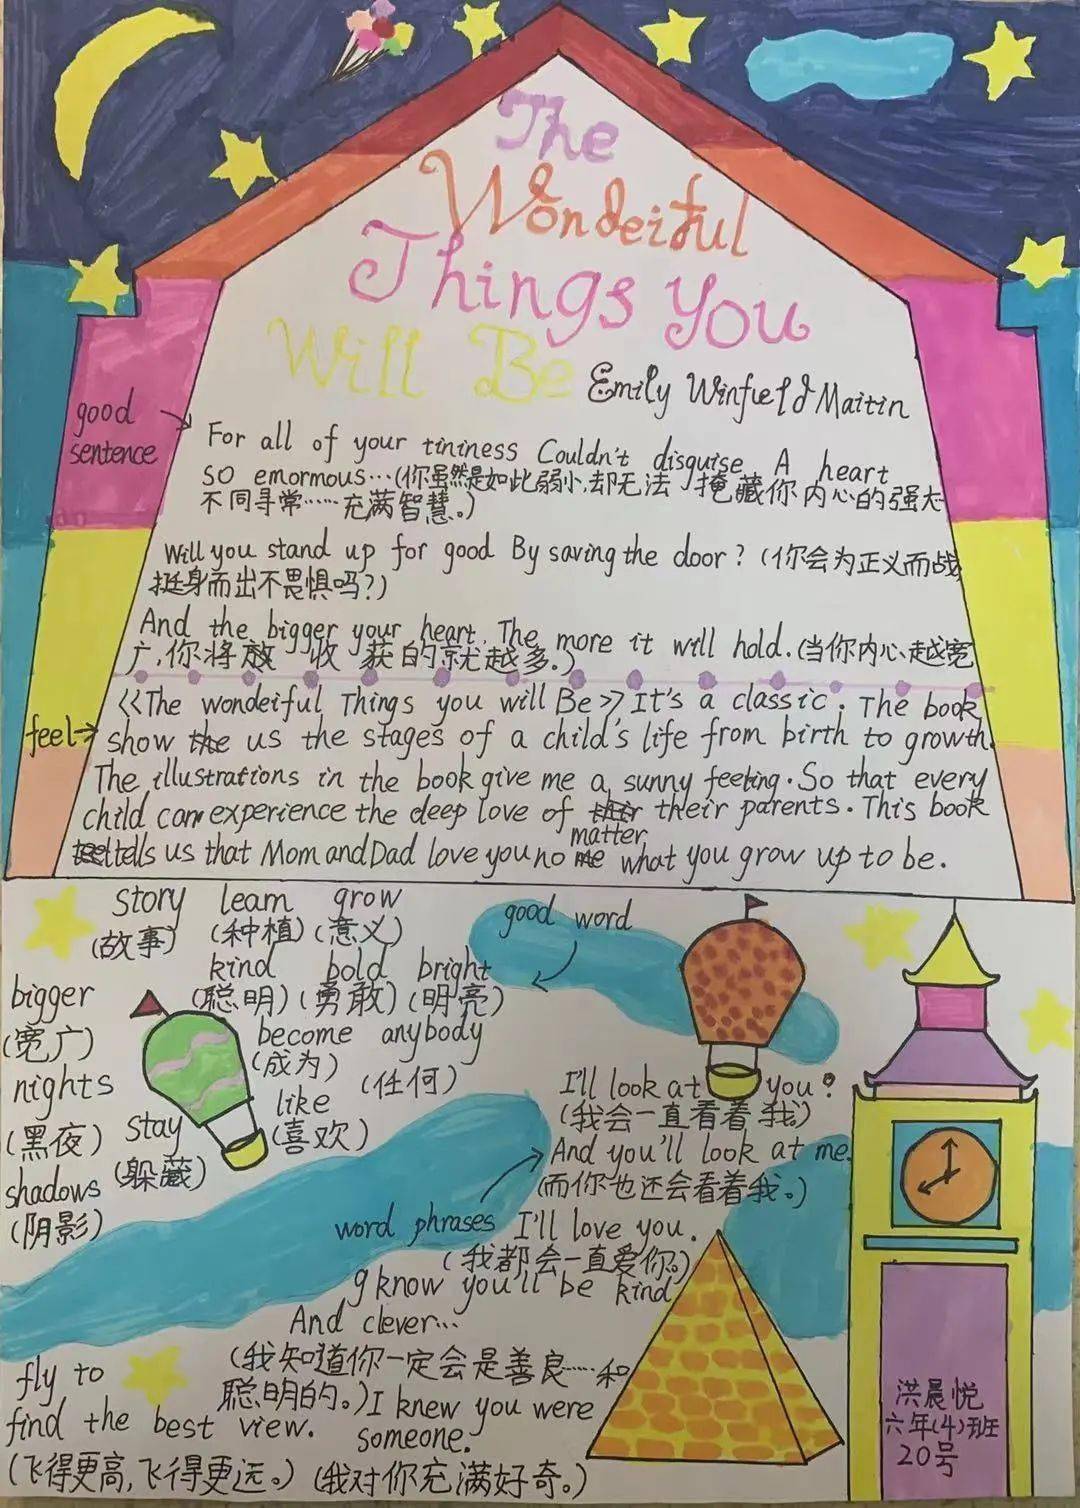 The
Wondeiful
Things You
Will Be
Emily Winfield Maitin
good
sentence
For all of your tininess Couldn't disguise A heart
so emormous…(你虽然是如此弱小,却无法 掩藏你内心的强大
不同寻常……充满智慧。)
Will you stand up for good By saving the door? (你会为正义而战,
挺身而出不畏惧吗?)
And the bigger your heart. The more it will hold. (当你内心越宽
广,你将放 收 获的就越多.)
feel
<<The wondeiful Things you will Be>> It's a classic. The book
show us the stages of a child's life from birth to growth.
The illustrations in the book give me a sunny feeling. So that every
child can experience the deep love of their parents. This book
tells us that Mom and Dad love you no matter what you grow up to be.
good word
story learn grow
(故事) (种植) (意义)
kind bold bright
(聪明) (勇敢) (明亮)
bigger
(宽广)
become anybody
(成为) (任何)
nights
(黑夜)
like
(喜欢)
stay
(躲藏)
shadows
(阴影)
word phrases
I'll look at you?
(我会一直看着我。)
And you'll look at me.
(而你也还会看着我。)
I'll love you.
(我都会一直爱你。)
I know you'll be kind
And clever…
(我知道你一定会是善良……和
聪明的。)
I knew you were
someone.
(我对你充满好奇。)
fly to
find the best view.
(飞得更高,飞得更远。)
洪晨悦
六年(4)班
20号